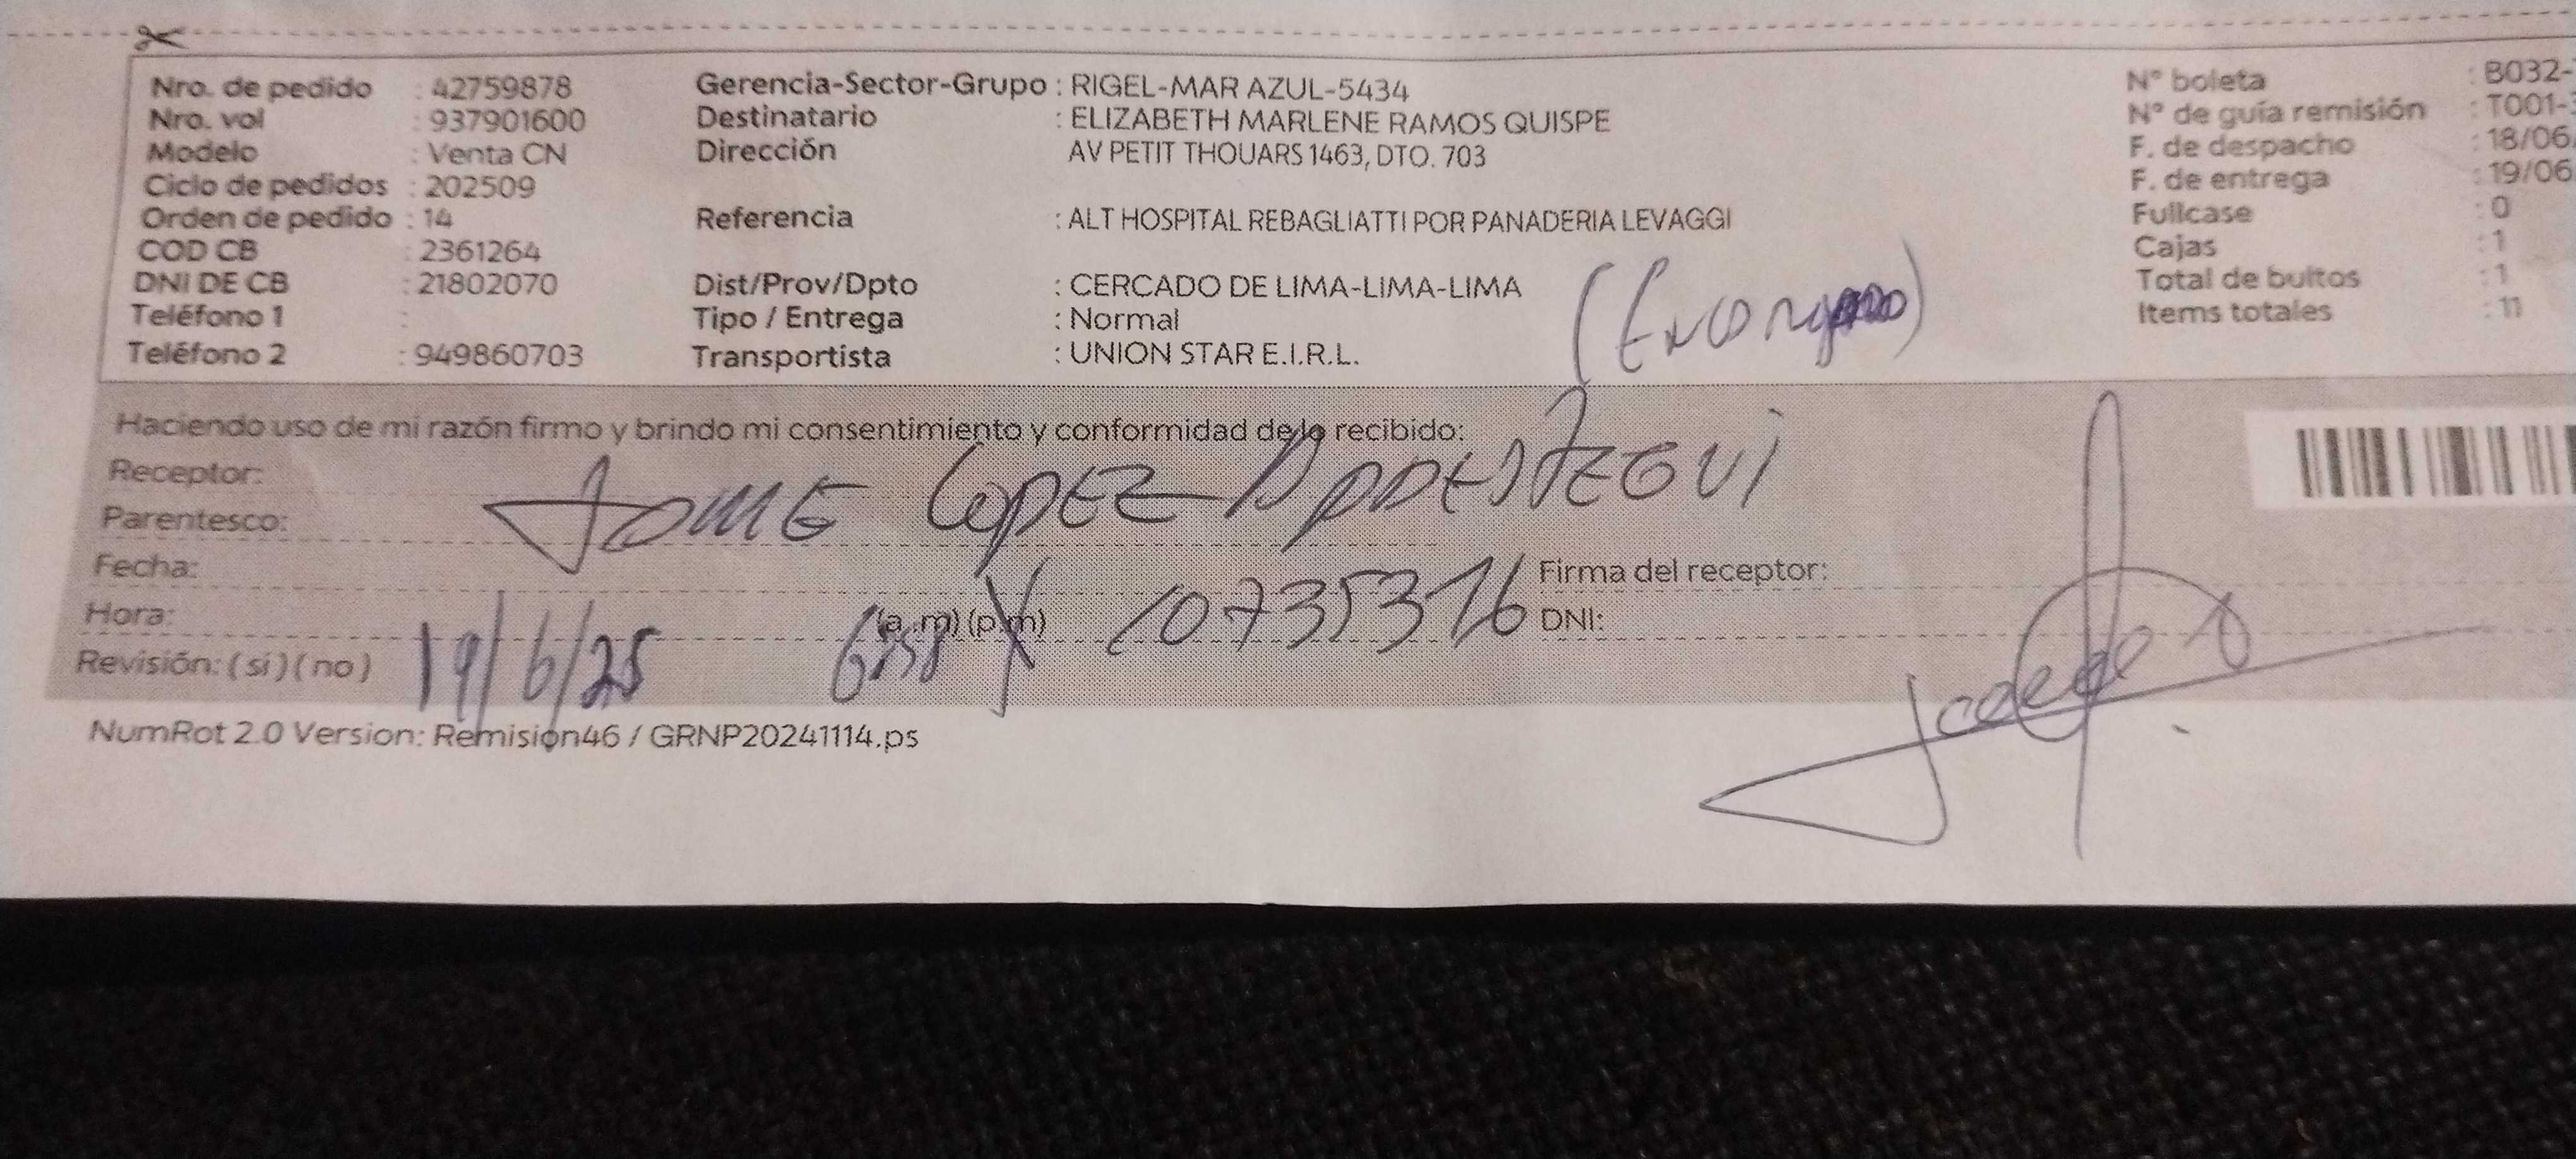 Nro. de pedido : 42759878 Gerencia-Sector-Grupo : RIGEL-MAR AZUL-5434 N° boleta : B032-
Nro. vol : 937901600 Destinatario : ELIZABETH MARLENE RAMOS QUISPE N° de guía remisión : T001-
Modelo : Venta CN Dirección AV PETIT THOUARS 1463, DTO. 703 F. de despacho : 18/06
Ciclo de pedidos : 202509 F. de entrega : 19/06
Orden de pedido : 14 Referencia : ALT HOSPITAL REBAGLIATTI POR PANADERIA LEVAGGI Fullcase : 0
COD CB : 2361264 Cajas : 1
DNI DE CB : 21802070 Dist/Prov/Dpto : CERCADO DE LIMA-LIMA-LIMA Total de bultos : 1
Teléfono 1 : Tipo / Entrega : Normal Items totales : 11
Teléfono 2 : 949860703 Transportista : UNION STAR E.I.R.L.
Haciendo uso de mi razón firmo y brindo mi consentimiento y conformidad de lo recibido:
Receptor:
Parentesco: LOPEZ
Fecha: Firma del receptor:
Hora: (a.m) (p.m) 10735376 DNI:
Revisión: (si) (no) 19/6/25 6:58
NumRot 2.0 Version: Remision46 / GRNP20241114.ps